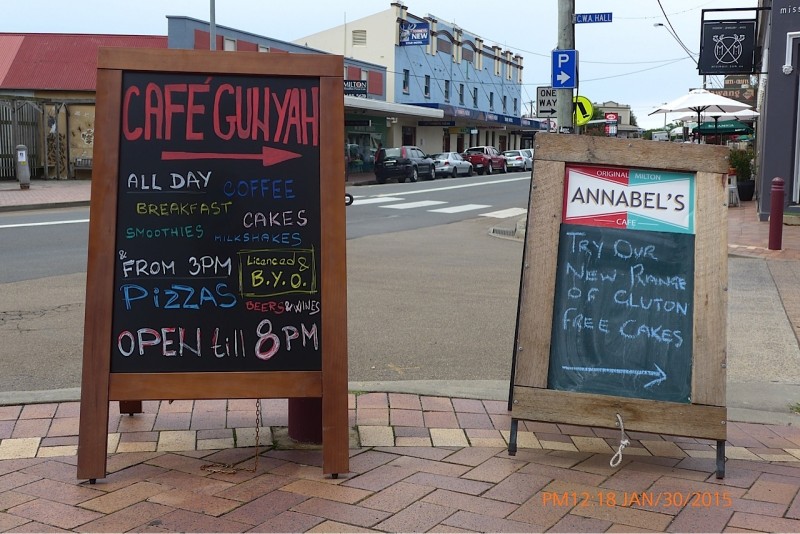 CWA HALL
NEW
P
ONE
WAY
CAFÉ GUNYAH
ALL DAY
COFFEE
BREAKFAST
CAKES
SMOOTHIES
MILKSHAKES
& FROM 3PM
Licenced &
B.Y.O.
PIZZAS
BEERS & WINES
OPEN till 8PM
ORIGINAL MILTON
ANNABEL'S
CAFE
TRY OUR
NEW RANGE
OF GLUTON
FREE CAKES
PM12:18 JAN/30/2015